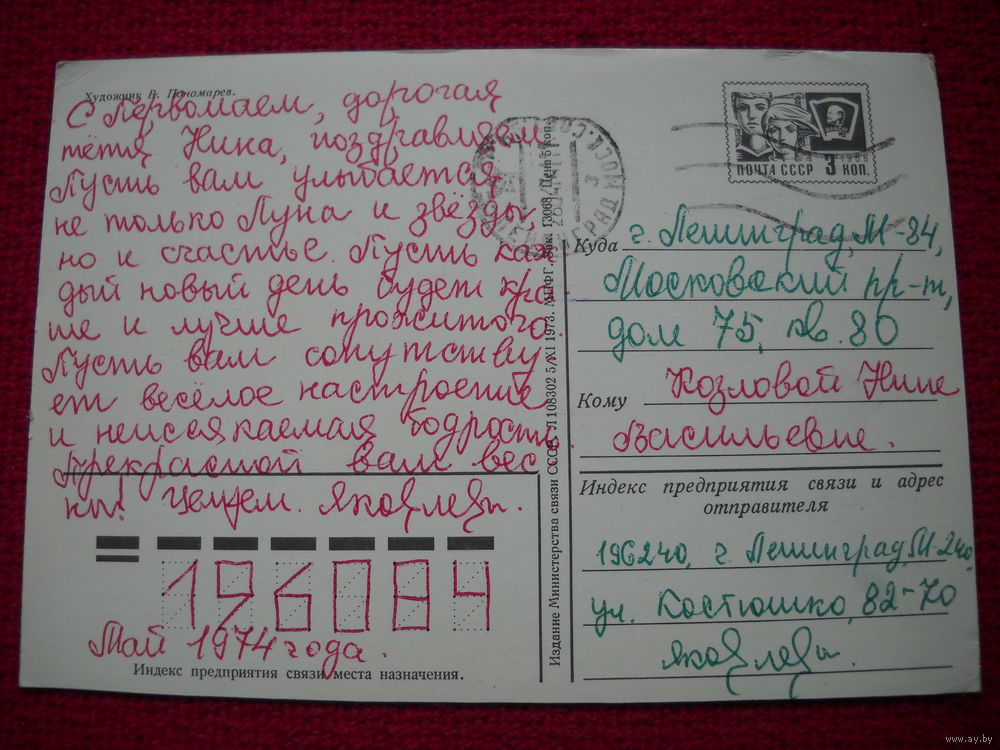 Художник В. Пономарев.
С Первомаем, дорогая
тётя Нина, поздравляем
Пусть вам улыбается
не только Луна и звёзды
но и счастье. Пусть каж
дый новый день будет кра
ше и лучше прожитого.
Пусть вам сопутству
ет весёлое настроение
и неиссякаемая бодрость.
Прекрасной вам вес
ны! Целуем. Яковлевы.
196084
Май 1974 года.
Индекс предприятия связи места назначения.
Издание Министерства связи СССР. Л 108302 5/XI 1973. МПФГ. Зак. 13068. Цена 5 коп.
ВЛКСМ
1966
ПОЧТА СССР 3 КОП.
Куда г. Ленинград, М-84,
Московский пр-т,
дом 75, кв. 80
Кому Козловой Нине
Васильевне.
Индекс предприятия связи и адрес
отправителя
196240, г. Ленинград, М-240,
ул. Костюшко, 82-70
Яковлевы.
www.ay.by